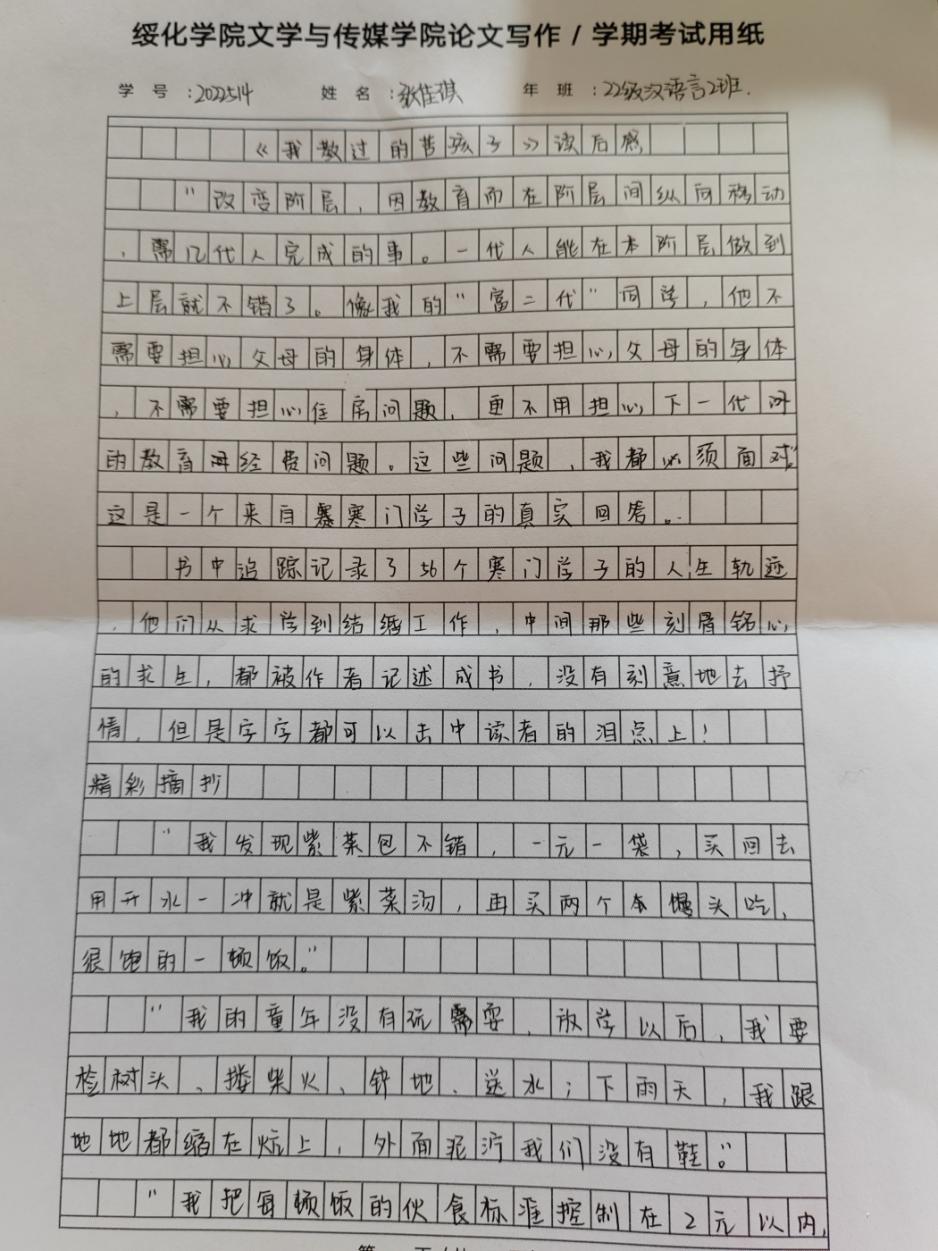 绥化学院文学与传媒学院论文写作 / 学期考试用纸
学 号 :2022514 姓 名 :张佳琪 年 班 :22级汉语言2班.
《我教过的苦孩子》读后感
"改变阶层，因教育而在阶层间纵向移动
，需几代人完成的事。一代人能在本阶层做到
上层就不错了。像我的"富二代"同学，他不
需要担心父母的身体，不需要担心父母的身体
，不需要担心住房问题，更不用担心下一代的
的教育经费问题。这些问题，我都必须面对。"
这是一个来自寒门学子的真实回答。
书中追踪记录了56个寒门学子的人生轨迹
，他们从求学到结婚工作，中间那些刻骨铭心
的求生，都被作者记述成书，没有刻意地去抒
情，但是字字都可以击中读者的泪点上！
精彩摘抄
"我发现紫菜包不错，一元一袋，买回去
用开水一冲就是紫菜汤，再买两个馒头吃，
很饱的一顿饭。"
"我的童年没有玩耍，放学以后，我要
捡树头、搂柴火、铲地、送水；下雨天，我跟
地地都缩在炕上，外面泥泞我们没有鞋。"
"我把每顿饭的伙食标准控制在2元以内，